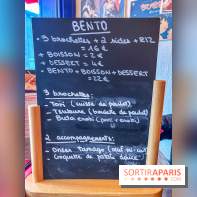 BENTO
• 3 brochettes + 2 sides + RIZ
= 16€
+ BOISSON = 2€
+ DESSERT = 4€
- BENTO + BOISSON + DESSERT
= 22€
3 brochettes:
- Tori (cuisse de poulet)
- Tsukune (boulette de poulet)
- Buta enoki (porc + enoki)
2 accompagnements:
- Onsen Tamago (œuf mi-cuit)
- Croquette de patate douce
SORTIRAPARIS